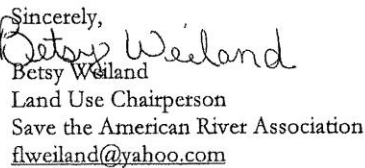 Sincerely,
Betsy Weiland
Betsy Weiland
Land Use Chairperson
Save the American River Association
flweiland@yahoo.com